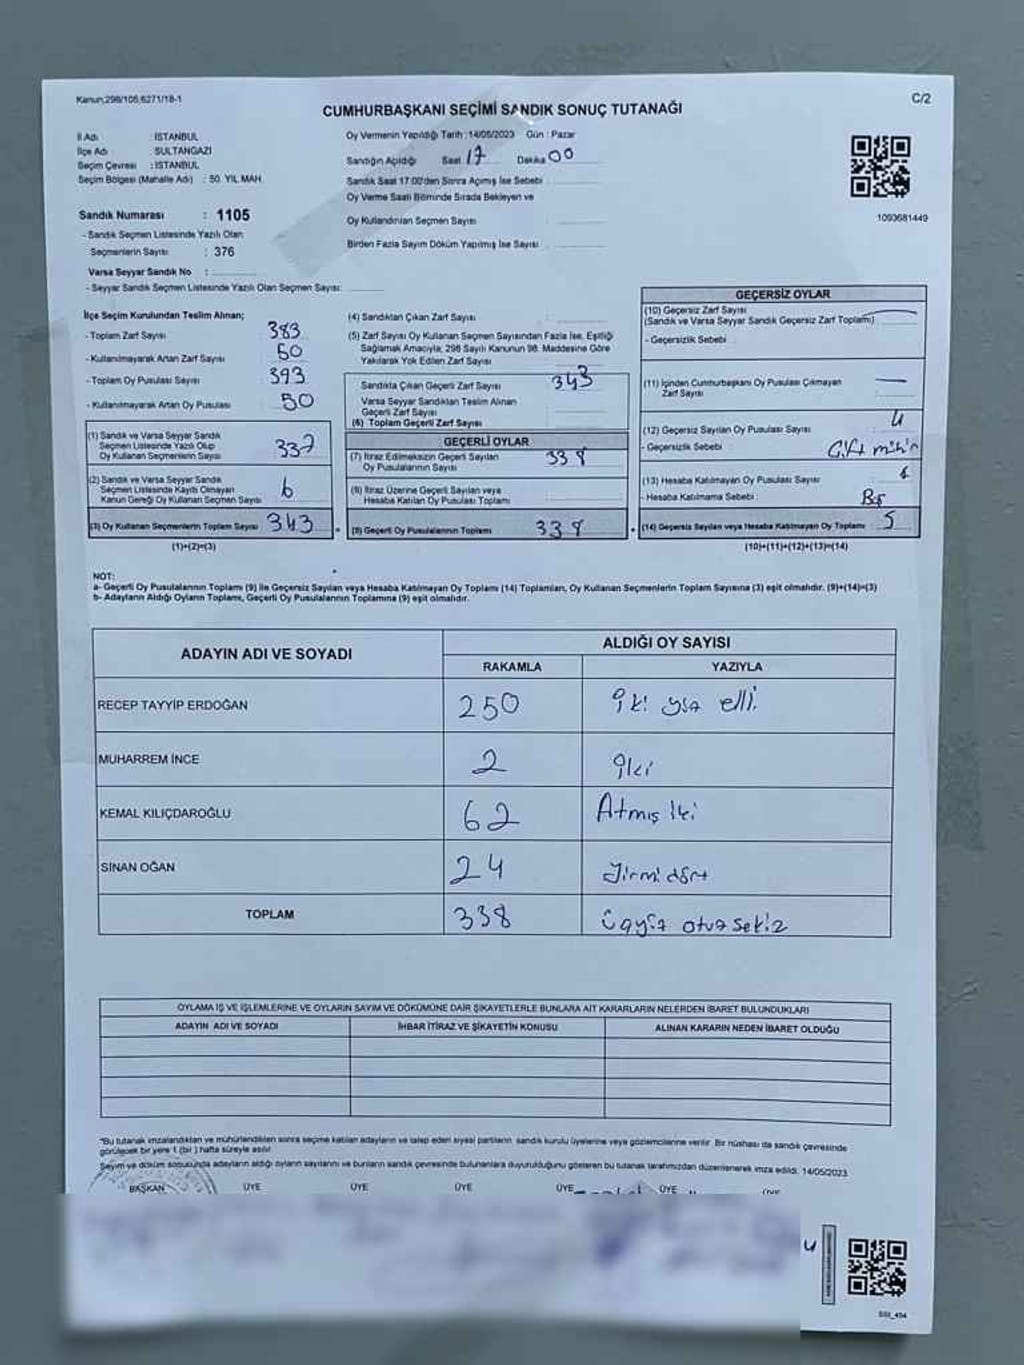 Kanun:298/105,6271/18-1
C/2
CUMHURBAŞKANI SEÇİMİ SANDIK SONUÇ TUTANAĞI
İl Adı : İSTANBUL
İlçe Adı : SULTANGAZİ
Seçim Çevresi : İSTANBUL
Seçim Bölgesi (Mahalle Adı) : 50. YIL MAH.
Sandık Numarası : 1105
- Sandık Seçmen Listesinde Yazılı Olan
Seçmenlerin Sayısı : 376
Varsa Seyyar Sandık No :
- Seyyar Sandık Seçmen Listesinde Yazılı Olan Seçmen Sayısı:
Oy Vermenin Yapıldığı Tarih : 14/05/2023 Gün : Pazar
Sandığın Açıldığı Saat 17 Dakika 00
Sandık Saat 17:00'den Sonra Açılmış İse Sebebi
Oy Verme Saati Bitiminde Sırada Bekleyen ve
Oy Kullandırılan Seçmen Sayısı :
Birden Fazla Sayım Döküm Yapılmış İse Sayısı :
1093681449
İlçe Seçim Kurulundan Teslim Alınan;
- Toplam Zarf Sayısı 383
- Kullanılmayarak Artan Zarf Sayısı 50
- Toplam Oy Pusulası Sayısı 393
- Kullanılmayarak Artan Oy Pusulası 50
(1) Sandık ve Varsa Seyyar Sandık
Seçmen Listesinde Yazılı Olup
Oy Kullanan Seçmenlerin Sayısı 337
(2) Sandık ve Varsa Seyyar Sandık
Seçmen Listesinde Kayıtlı Olmayan
Kanun Gereği Oy Kullanan Seçmen Sayısı 6
(3) Oy Kullanan Seçmenlerin Toplam Sayısı 343
(1)+(2)=(3)
(4) Sandıktan Çıkan Zarf Sayısı :
(5) Zarf Sayısı Oy Kullanan Seçmen Sayısından Fazla İse, Eşitliği
Sağlamak Amacıyla, 298 Sayılı Kanunun 98. Maddesine Göre
Yakılarak Yok Edilen Zarf Sayısı :
Sandıkta Çıkan Geçerli Zarf Sayısı 343
Varsa Seyyar Sandıktan Teslim Alınan
Geçerli Zarf Sayısı
(6) Toplam Geçerli Zarf Sayısı
GEÇERLİ OYLAR
(7) İtiraz Edilmeksizin Geçerli Sayılan
Oy Pusulalarının Sayısı 338
(8) İtiraz Üzerine Geçerli Sayılan veya
Hesaba Katılan Oy Pusulası Toplamı
(9) Geçerli Oy Pusulalarının Toplamı 338
GEÇERSİZ OYLAR
(10) Geçersiz Zarf Sayısı
(Sandık ve Varsa Seyyar Sandık Geçersiz Zarf Toplamı)
- Geçersizlik Sebebi
(11) İçinden Cumhurbaşkanı Oy Pusulası Çıkmayan
Zarf Sayısı
(12) Geçersiz Sayılan Oy Pusulası Sayısı 4
- Geçersizlik Sebebi Çift mühür
(13) Hesaba Katılmayan Oy Pusulası Sayısı 1
- Hesaba Katılmama Sebebi : Boş
(14) Geçersiz Sayılan veya Hesaba Katılmayan Oy Toplamı : 5
(10)+(11)+(12)+(13)=(14)
NOT:
a- Geçerli Oy Pusulalarının Toplamı (9) ile Geçersiz Sayılan veya Hesaba Katılmayan Oy Toplamı (14) Toplamları, Oy Kullanan Seçmenlerin Toplam Sayısına (3) eşit olmalıdır. (9)+(14)=(3)
b- Adayların Aldığı Oyların Toplamı, Geçerli Oy Pusulalarının Toplamına (9) eşit olmalıdır.
ADAYIN ADI VE SOYADI ALDIĞI OY SAYISI
RAKAMLA YAZIYLA
RECEP TAYYİP ERDOĞAN 250 İki yüz elli
MUHARREM İNCE 2 İki
KEMAL KILIÇDAROĞLU 62 Atmış İki
SİNAN OĞAN 24 Yirmi dört
TOPLAM 338 Üçyüz otuz sekiz
OYLAMA İŞ VE İŞLEMLERİNE VE OYLARIN SAYIM VE DÖKÜMÜNE DAİR ŞİKAYETLERLE BUNLARA AİT KARARLARIN NELERDEN İBARET BULUNDUKLARI
ADAYIN ADI VE SOYADI İHBAR İTİRAZ VE ŞİKAYETİN KONUSU ALINAN KARARIN NEDEN İBARET OLDUĞU
*Bu tutanak imzalandıktan ve mühürlendikten sonra seçime katılan adayların ve talep eden siyasi partilerin sandık kurulu üyelerine veya gözlemcilerine verilir. Bir nüshası da sandık çevresinde
görülecek bir yere 1 (bir) hafta süreyle asılır.
Sayım ve döküm sonucunda adayların aldığı oyların sayılarını ve bunların sandık çevresinde bulunanlara duyurulduğunu gösteren bu tutanak tarafımızdan düzenlenerek imza edildi. 14/05/2023
BAŞKAN ÜYE ÜYE ÜYE ÜYE ÜYE ÜYE